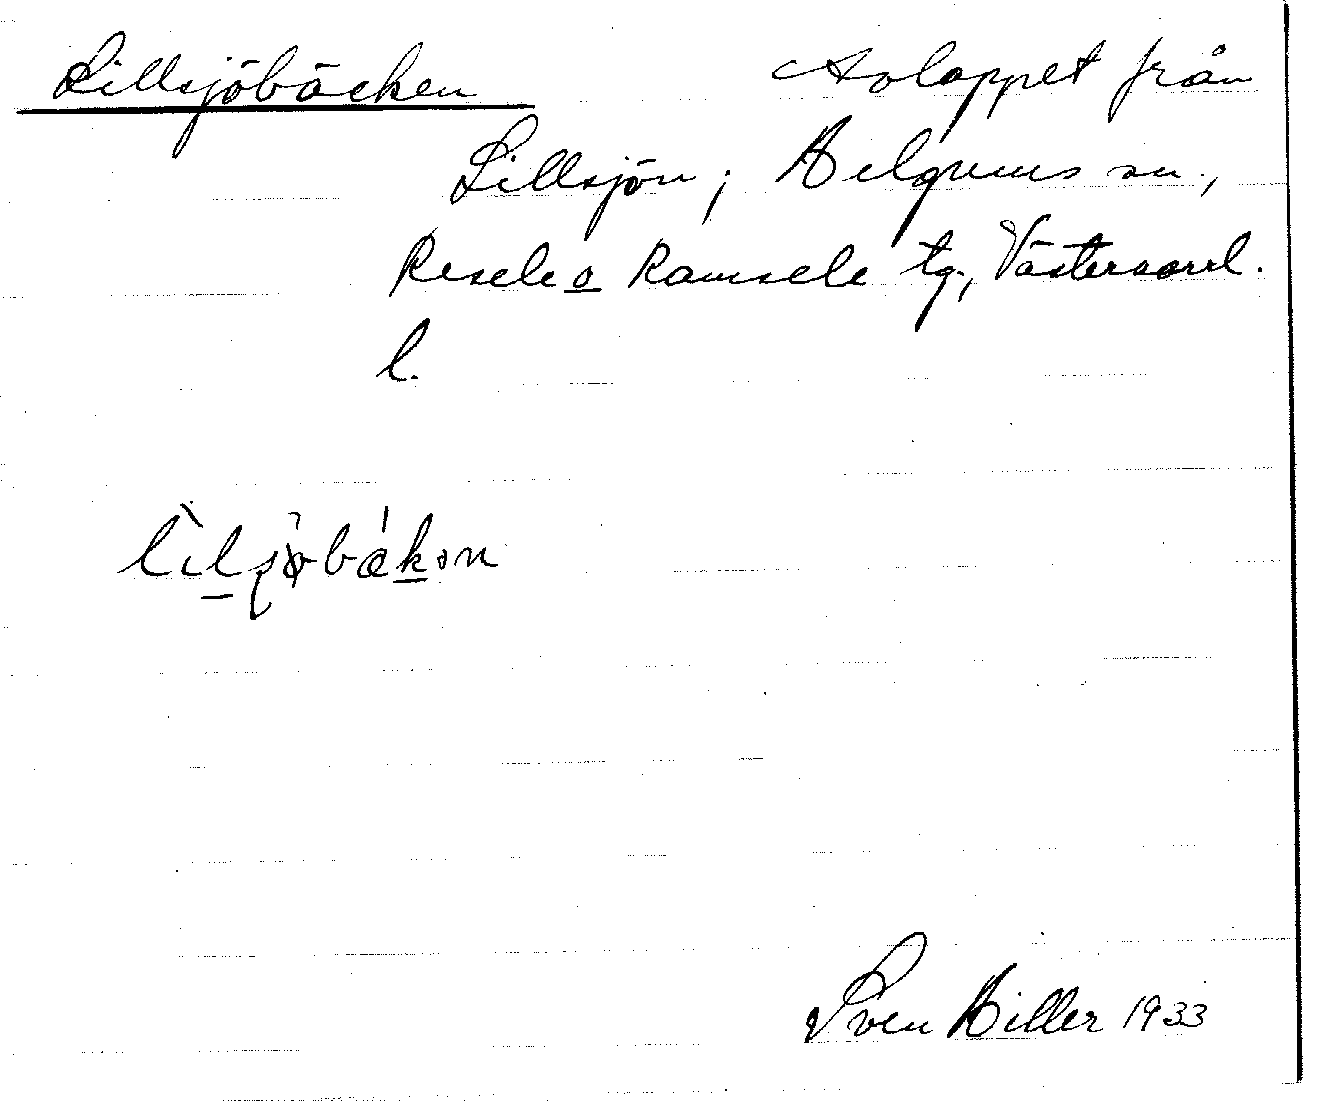 Lillsjöbäcken Avloppet från
Lillsjön; Helgums sn.,
Resele o Ramsele tg., Västernorrl.
l.
Sven Hiller 1933